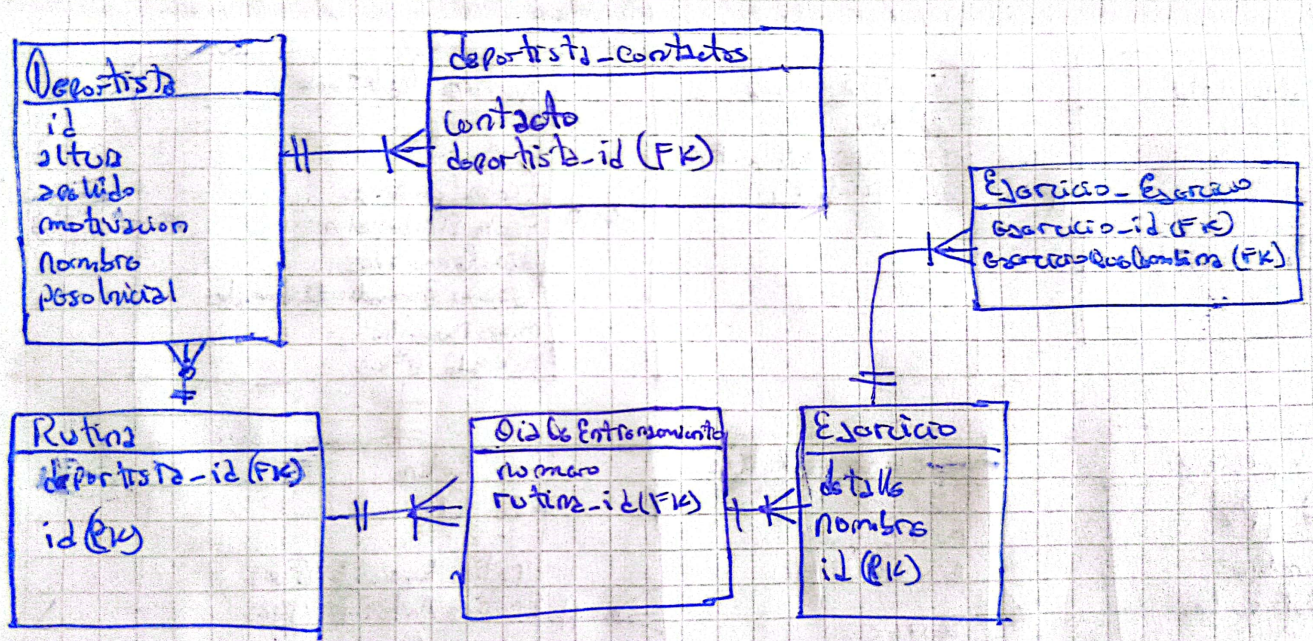 Deportista
id
altura
apellido
motivacion
nombre
pesoInicial
deportista_contactos
contacto
deportista_id (FK)
Ejercicio_Ejercicio
ejercicio_id (FK)
ejercicioQueCombina (FK)
Rutina
deportista_id (FK)
id (PK)
Dia De Entrenamiento
numero
rutina_id (FK)
Ejercicio
detalle
nombre
id (PK)